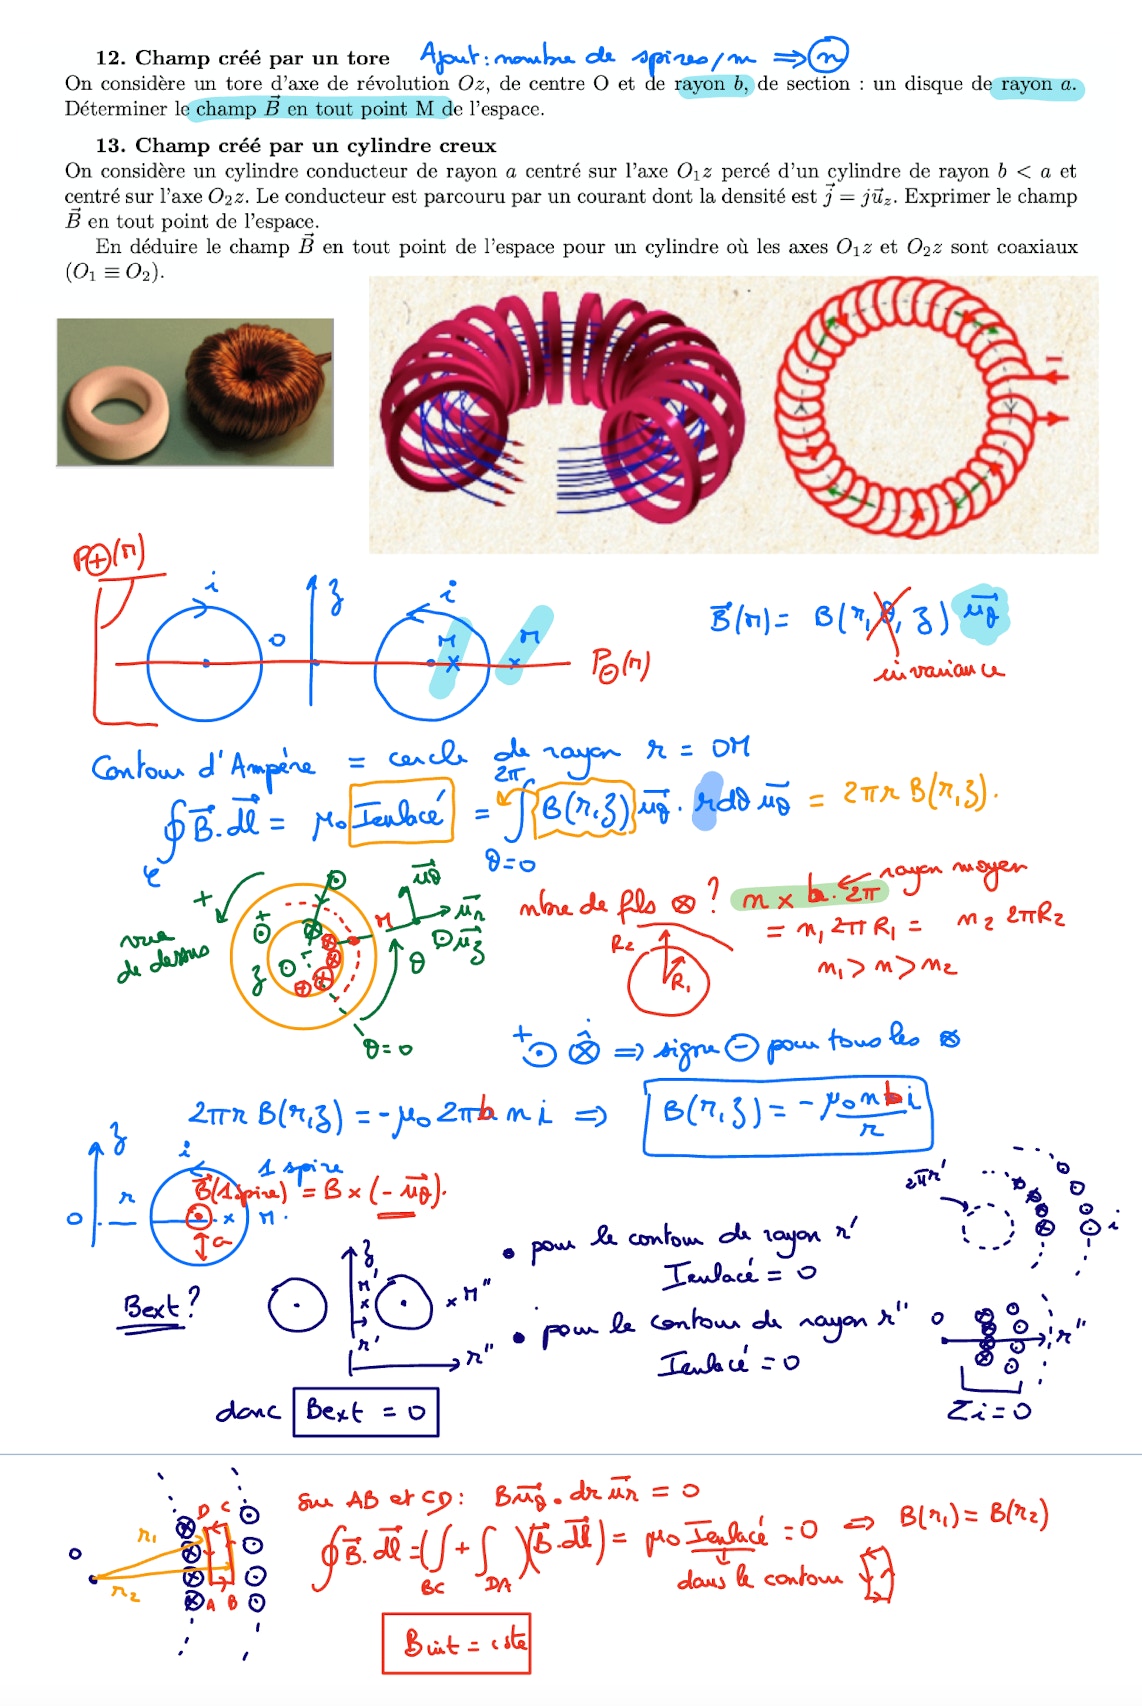 12. Champ créé par un tore Ajout : nombre de spires/m ⇒ n
On considère un tore d'axe de révolution Oz, de centre O et de rayon b, de section : un disque de rayon a.
Déterminer le champ B⃗ en tout point M de l'espace.
13. Champ créé par un cylindre creux
On considère un cylindre conducteur de rayon a centré sur l'axe O₁z percé d'un cylindre de rayon b < a et
centré sur l'axe O₂z. Le conducteur est parcouru par un courant dont la densité est j⃗ = ju⃗z. Exprimer le champ
B⃗ en tout point de l'espace.
En déduire le champ B⃗ en tout point de l'espace pour un cylindre où les axes O₁z et O₂z sont coaxiaux
(O₁ ≡ O₂).
P⊕(M)
i z i
O M M P⊖(M)
B⃗(M) = B(r, θ, z) u⃗θ
invariance
Contour d'Ampère = cercle de rayon r = OM
∮ B⃗.dl⃗ = μ₀ Ienlacé = ∫ B(r,z) u⃗θ . r dθ u⃗θ = 2πr B(r,z).
C θ=0 2π
+ u⃗θ u⃗r u⃗z M θ z
vue de dessus
θ=0
nbre de fils ⊗ ? n × b. 2π ← rayon moyen
= n₁ 2π R₁ = n₂ 2πR₂
R₂ R₁ n₁ > n > n₂
+ ⊙ ⊗ i ⇒ signe ⊖ pour tous les ⊗
2πr B(r,z) = -μ₀ 2πb n i ⇒ B(r,z) = -μ₀nbi / r
z i 1 spire
B⃗(1spire) = B × (-u⃗θ).
O r x M a
2πr' i
Bext ?
z M' r' M" r"
• pour le contour de rayon r'
Ienlacé = 0
• pour le contour de rayon r"
Ienlacé = 0
O r"
Σi = 0
donc Bext = 0
Sur AB et CD : Bu⃗θ . dr u⃗r = 0
∮ B⃗. dl⃗ = (∫ + ∫)(B⃗.dl⃗) = μ₀ Ienlacé = 0 ⇒ B(r₁) = B(r₂)
BC DA
dans le contour
O r₁ r₂ D C A B
Bint = cste